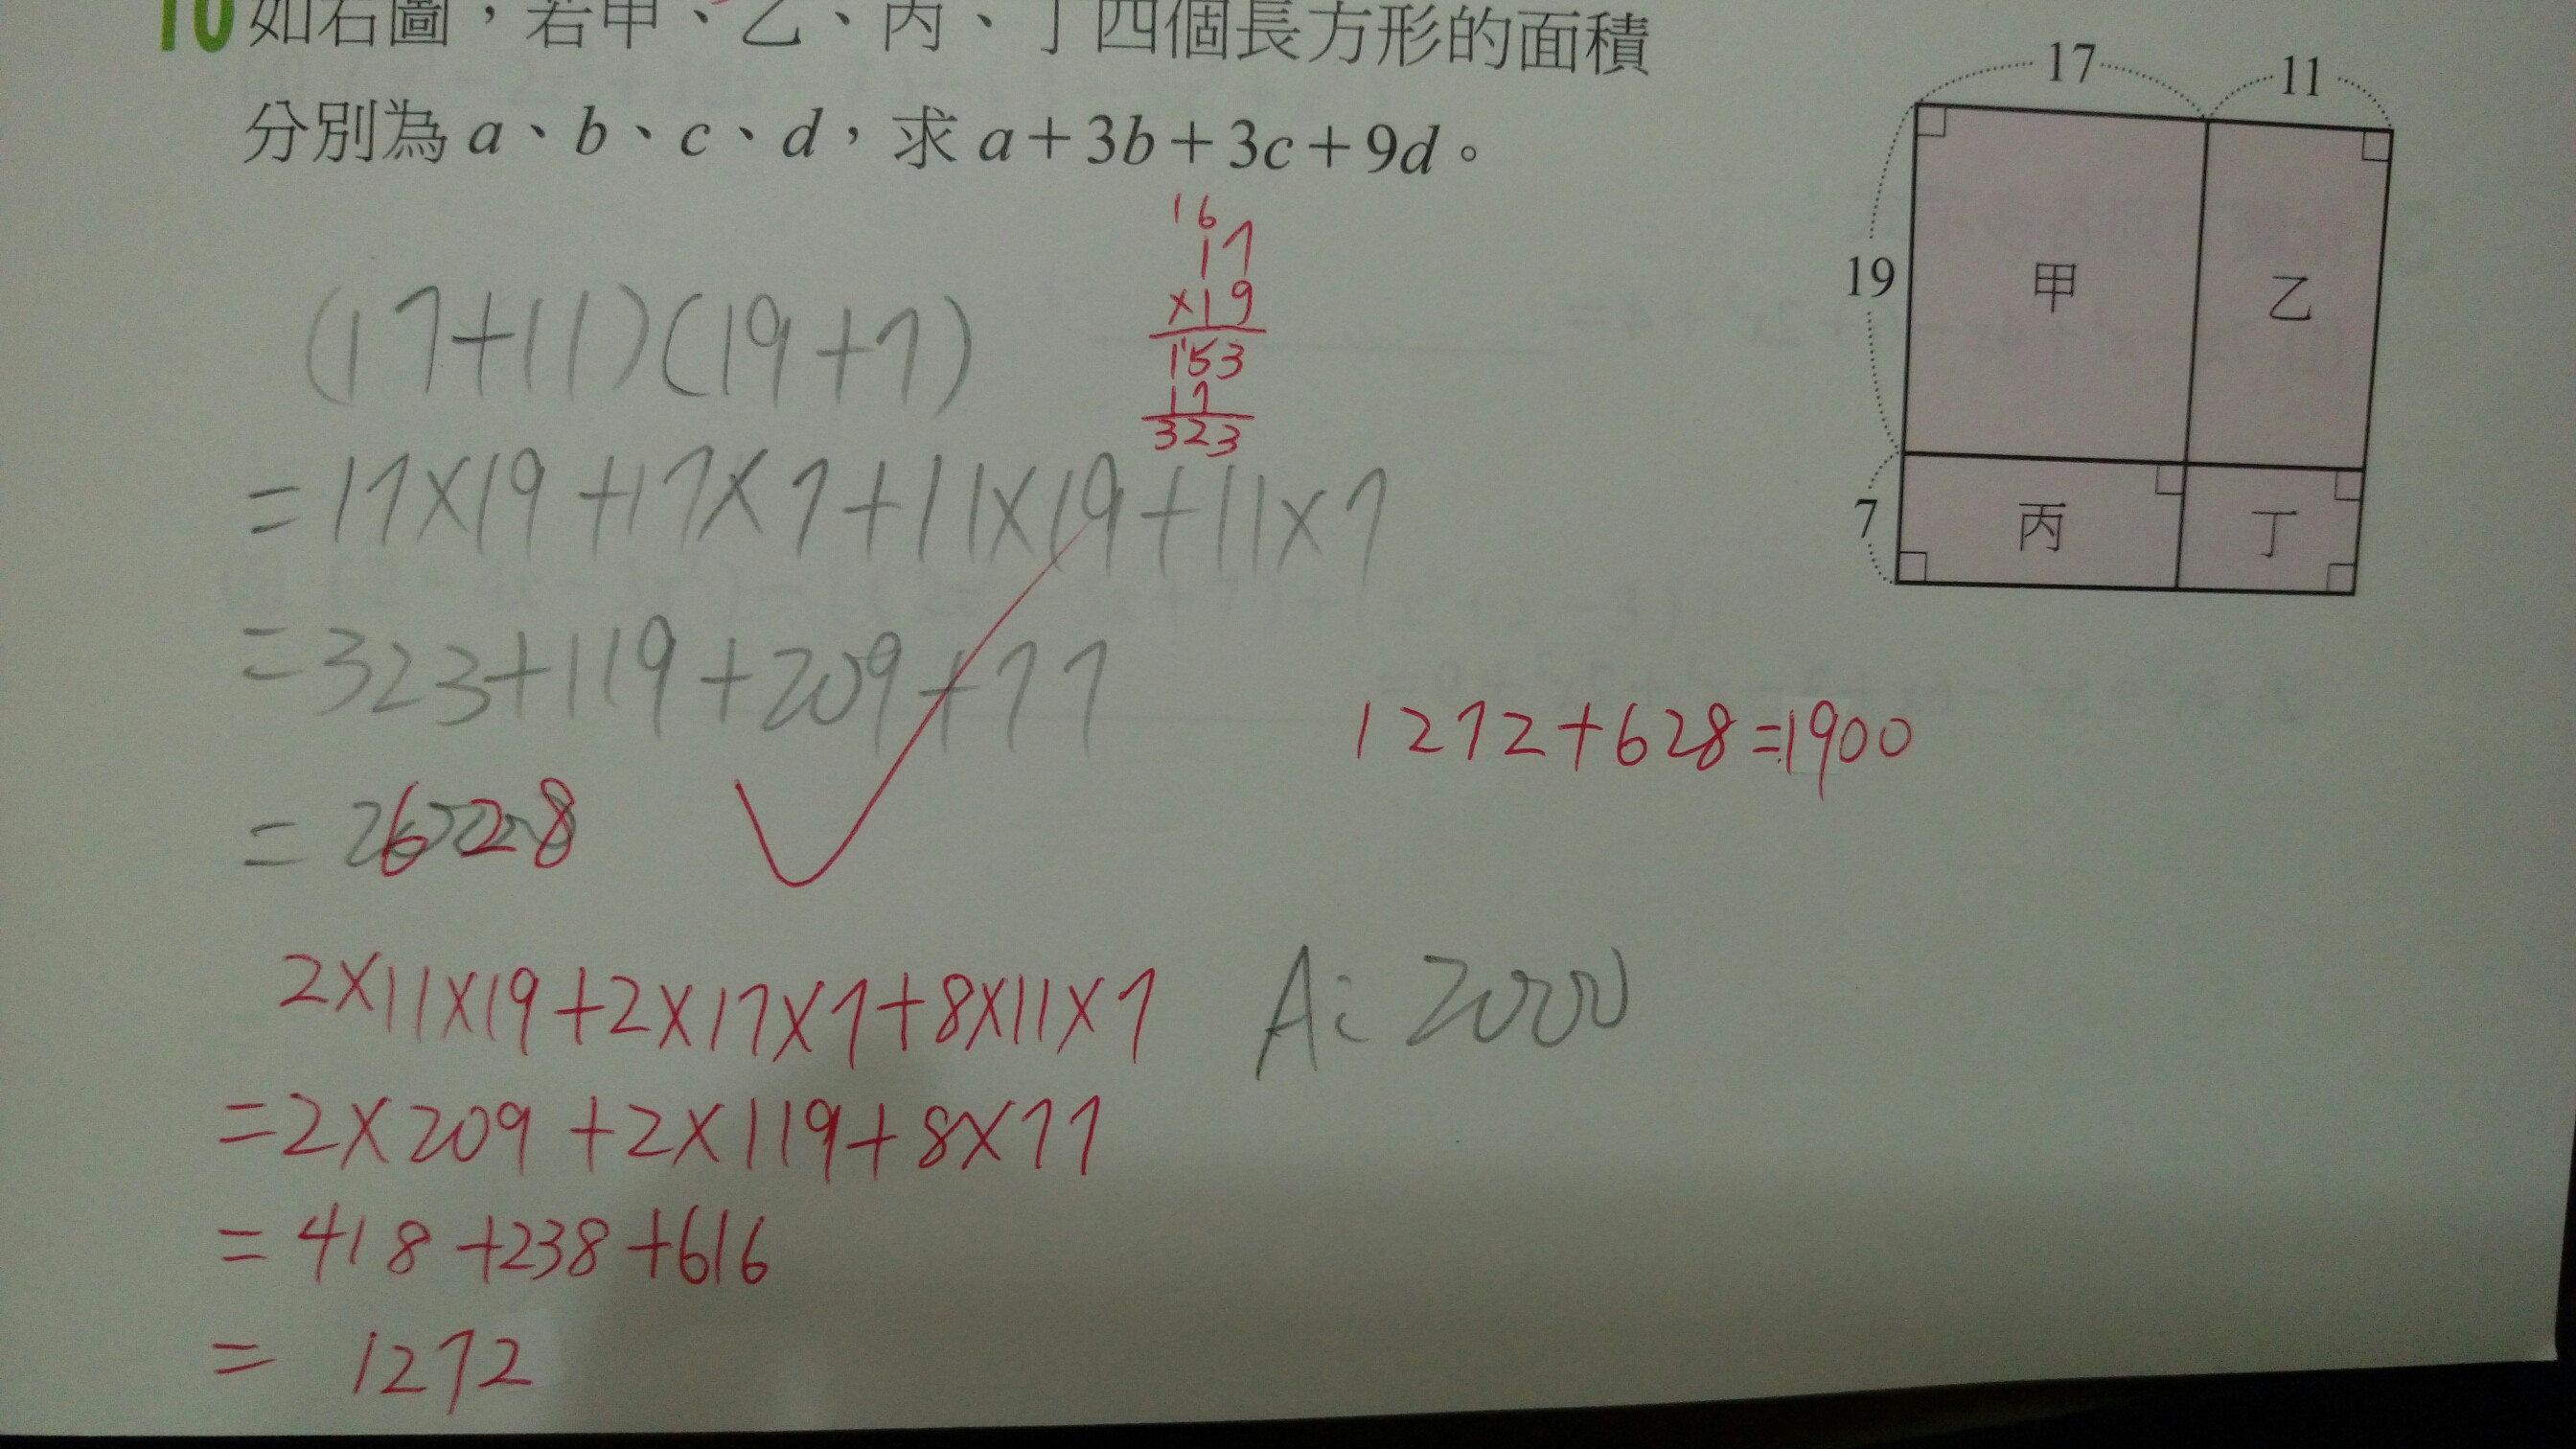 10 如右圖，若甲、乙、丙、丁四個長方形的面積
分別為 a、b、c、d，求 a＋3b＋3c＋9d。
17
11
19
甲
乙
7
丙
丁
16
17
×19
153
17
323
(17+11)(19+7)
=17×19+17×7+11×19+11×7
=323+119+209+77
= 628
1272+628=1900
2×11×19+2×17×7+8×11×7
=2×209+2×119+8×77
=418+238+616
= 1272
A: 2000